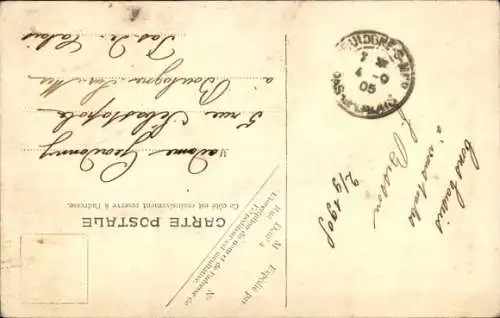 CARTE POSTALE
Ce côté est exclusivement réservé à l'adresse.
Madame
5 rue Sébastopole
à Boulogne sur Mer
Pas de Calais
Expédié par
M
Rue
Dept
N°
L'inscription du nom et de l'adresse de
l'Expéditeur est facultative.
BOULOGNE-S-MER
7
4 -9
05
PAS-DE-CALAIS
2/9 1905